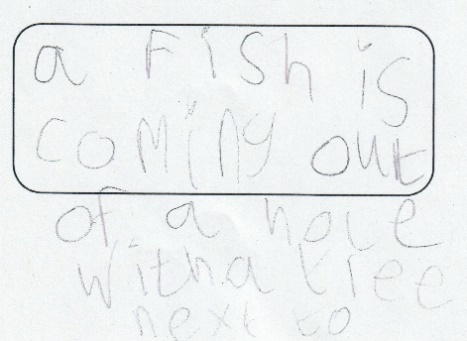 a Fish is
coming out
of a hole
witha tree
next to